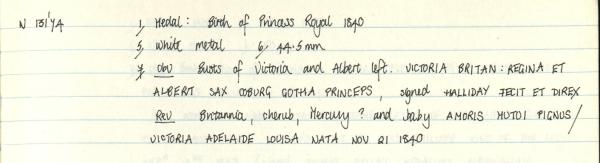 N 131'74 1, Medal: Birth of Princess Royal 1840
5, White metal 6, 44.5mm
7, Obv Busts of Victoria and Albert left. VICTORIA BRITAN: REGINA ET
ALBERT SAX COBURG GOTHA PRINCEPS, signed HALLIDAY FECIT ET DIREX
Rev Britannia, cherub, Mercury? and baby AMORIS MUTOI PIGNUS/
VICTORIA ADELAIDE LOUISA NATA NOV 21 1840